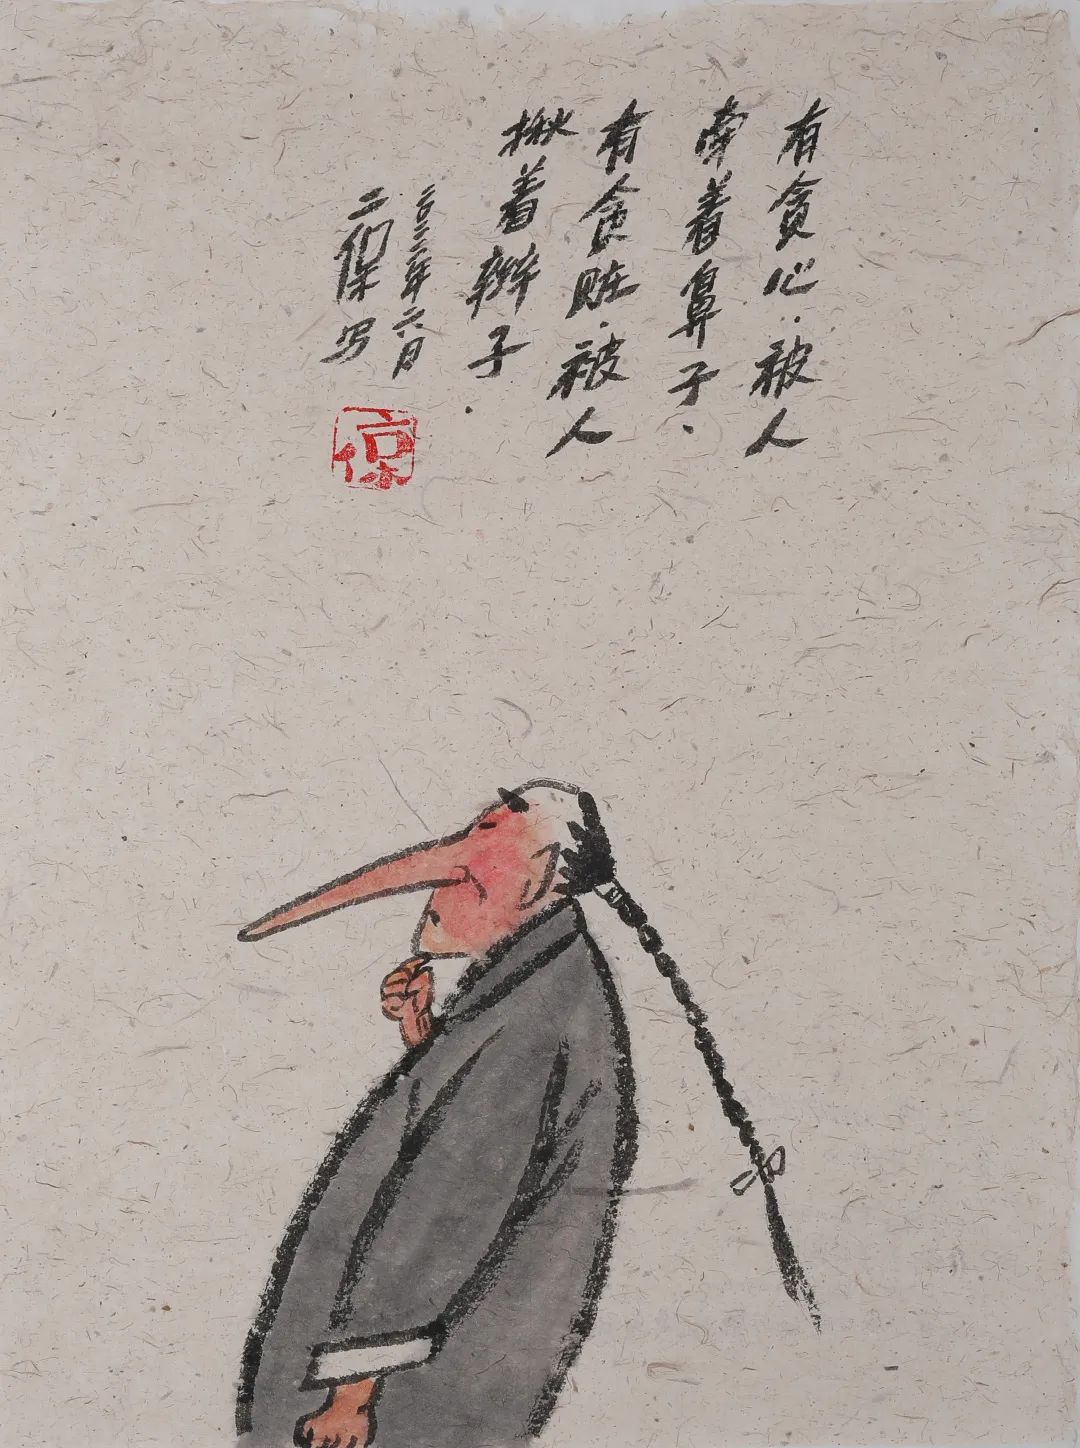 有贪心·被人
牵着鼻子、
有贪赃·被人
揪着辫子.
二〇二二年六月
二保写